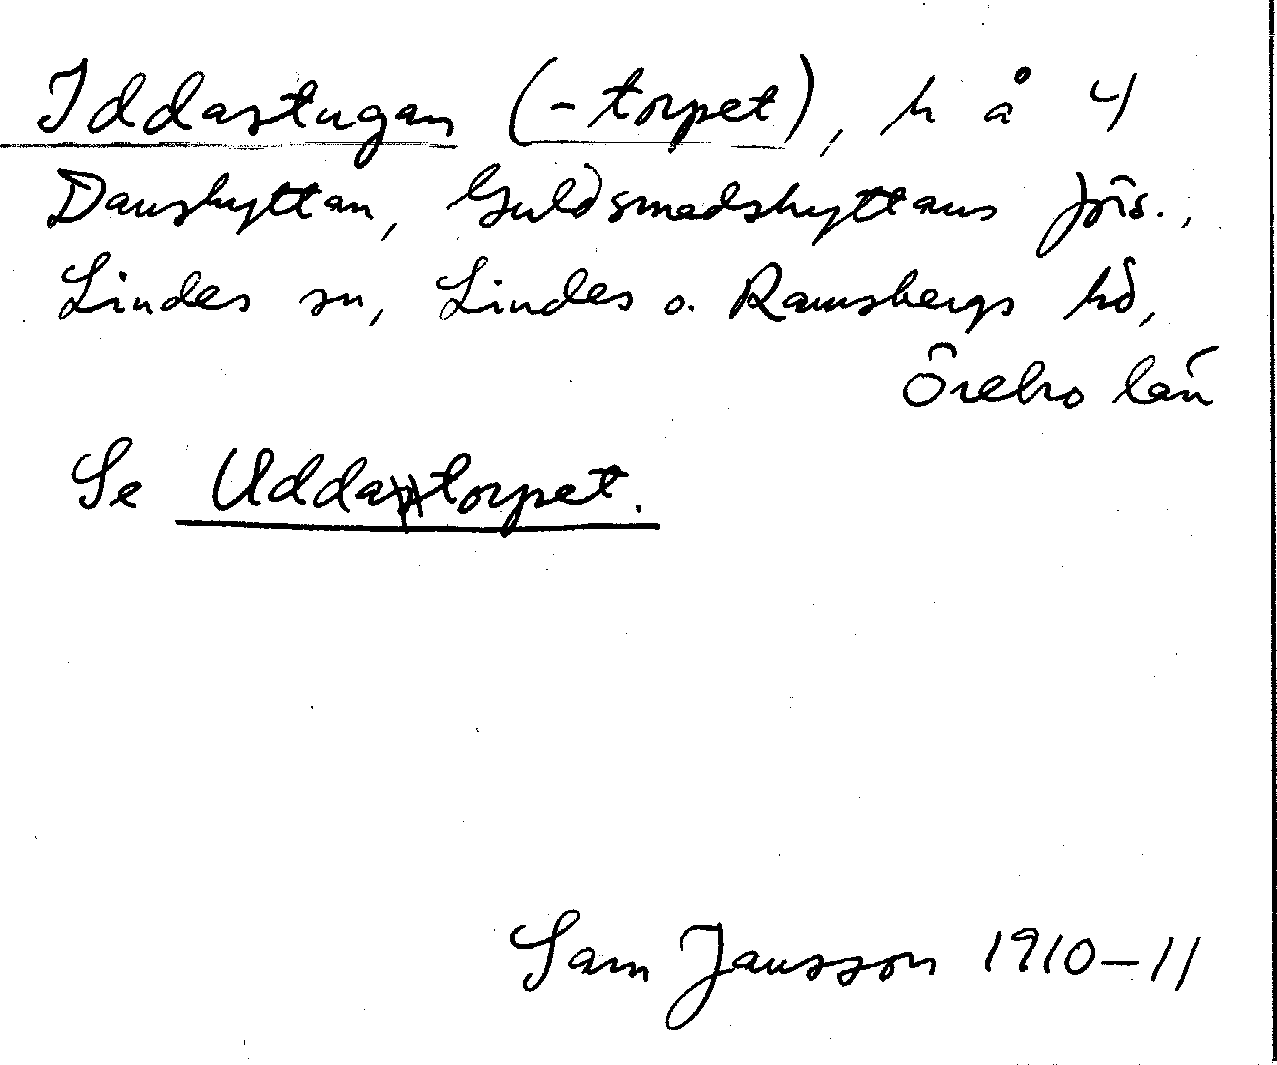 Iddastugan (-torpet), h å 4
Danshyttan, Guldsmedshyttans förs.,
Lindes sn, Lindes o. Ramsbergs hd,
Örebro län
Se Uddatorpet.
Sam Jansson 1910-11